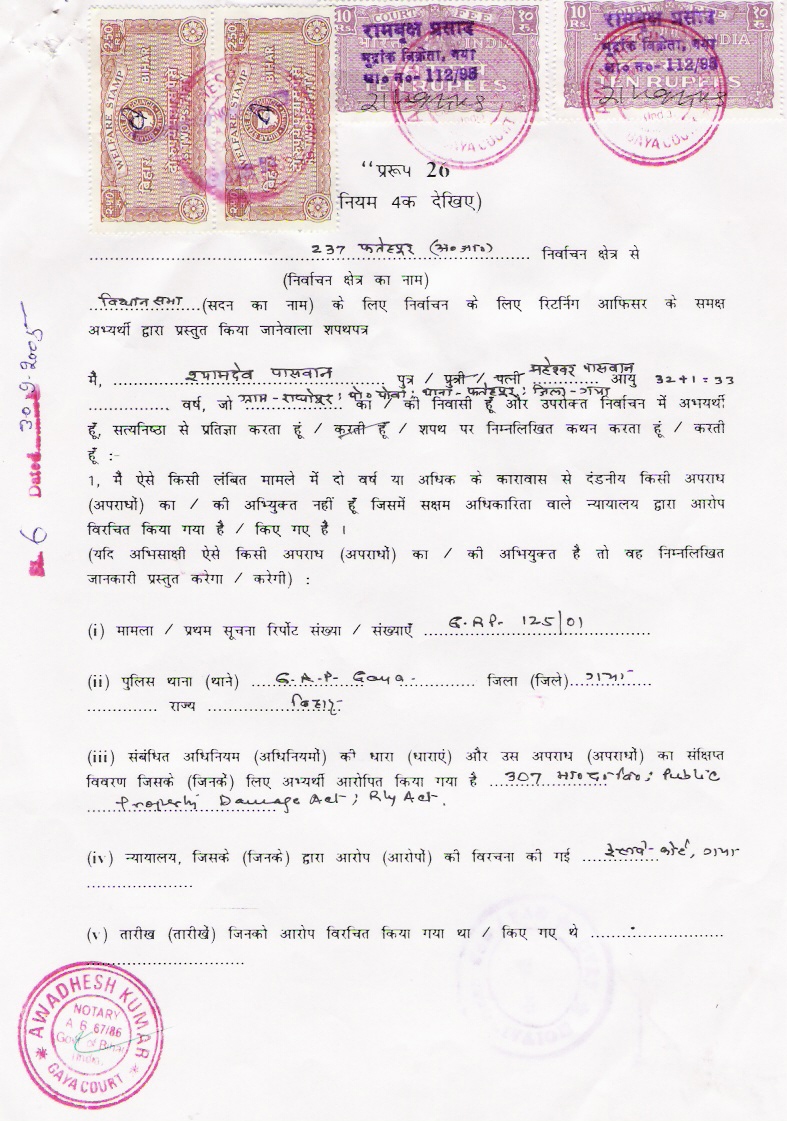 WELFARE STAMP BIHAR
2.50
बिहार
WELFARE STAMP BIHAR
2.50
बिहार
10 COURT FEE १०
Rs. रु.
भारत INDIA
TEN RUPEES
रामबृक्ष प्रसाद
मुद्रांक विक्रेता, गया
ला० न०- 112/98
GAYA COURT
10 COURT FEE १०
Rs. रु.
INDIA
TEN RUPEES
रामबृक्ष प्रसाद
मुद्रांक विक्रेता, गया
ला० न०- 112/98
GAYA COURT
“प्ररूप 26
नियम 4क देखिए)
237 फतेहपुर (अ० जा०) निर्वाचन क्षेत्र से
(निर्वाचन क्षेत्र का नाम)
विधान सभा (सदन का नाम) के लिए निर्वाचन के लिए रिटर्निंग आफिसर के समक्ष
अभ्यर्थी द्वारा प्रस्तुत किया जानेवाला शपथपत्र
मैं, श्यामदेव पासवान पुत्र / पुत्री / पत्नी महेश्वर पासवान आयु 32+1=33
वर्ष, जो ग्राम - पो० थाना - फतेहपुर; जिला - गया का / की निवासी हूँ और उपरोक्त निर्वाचन में अभयर्थी
हूँ, सत्यनिष्ठा से प्रतिज्ञा करता हूँ / करती हूँ / शपथ पर निम्नलिखित कथन करता हूं / करती
हूँ :-
1, मै ऐसे किसी लंबित मामले में दो वर्ष या अधिक के कारावास से दंडनीय किसी अपराध
(अपराधों) का / की अभियुक्त नहीं हूँ जिसमें सक्षम अधिकारिता वाले न्यायालय द्वारा आरोप
विरचित किया गया है / किए गए है ।
(यदि अभिसाक्षी ऐसे किसी अपराध (अपराधों) का / की अभियुक्त है तो वह निम्नलिखित
जानकारी प्रस्तुत करेगा / करेगी) :
(i) मामला / प्रथम सूचना रिर्पोट संख्या / संख्याएँ G.RP- 125/01
(ii) पुलिस थाना (थाने) G.R.P- Gaya जिला (जिले) गया
राज्य बिहार
(iii) संबंधित अधिनियम (अधिनियमों) की धारा (धाराएं) और उस अपराध (अपराधों) का संक्षिप्त
विवरण जिसके (जिनके) लिए अभ्यर्थी आरोपित किया गया है 307 भा०द०वि०; Public
Property Damage Act; Rly Act.
(iv) न्यायालय, जिसके (जिनके) द्वारा आरोप (आरोपों) की विरचना की गई रेलवे- कोर्ट, गया
(v) तारीख (तारीखें) जिनको आरोप विरचित किया गया था / किए गए थे
6 Dated 30-9-2005
AWADHESH KUMAR
NOTARY
67/86
Govt of Bihar
GAYA COURT